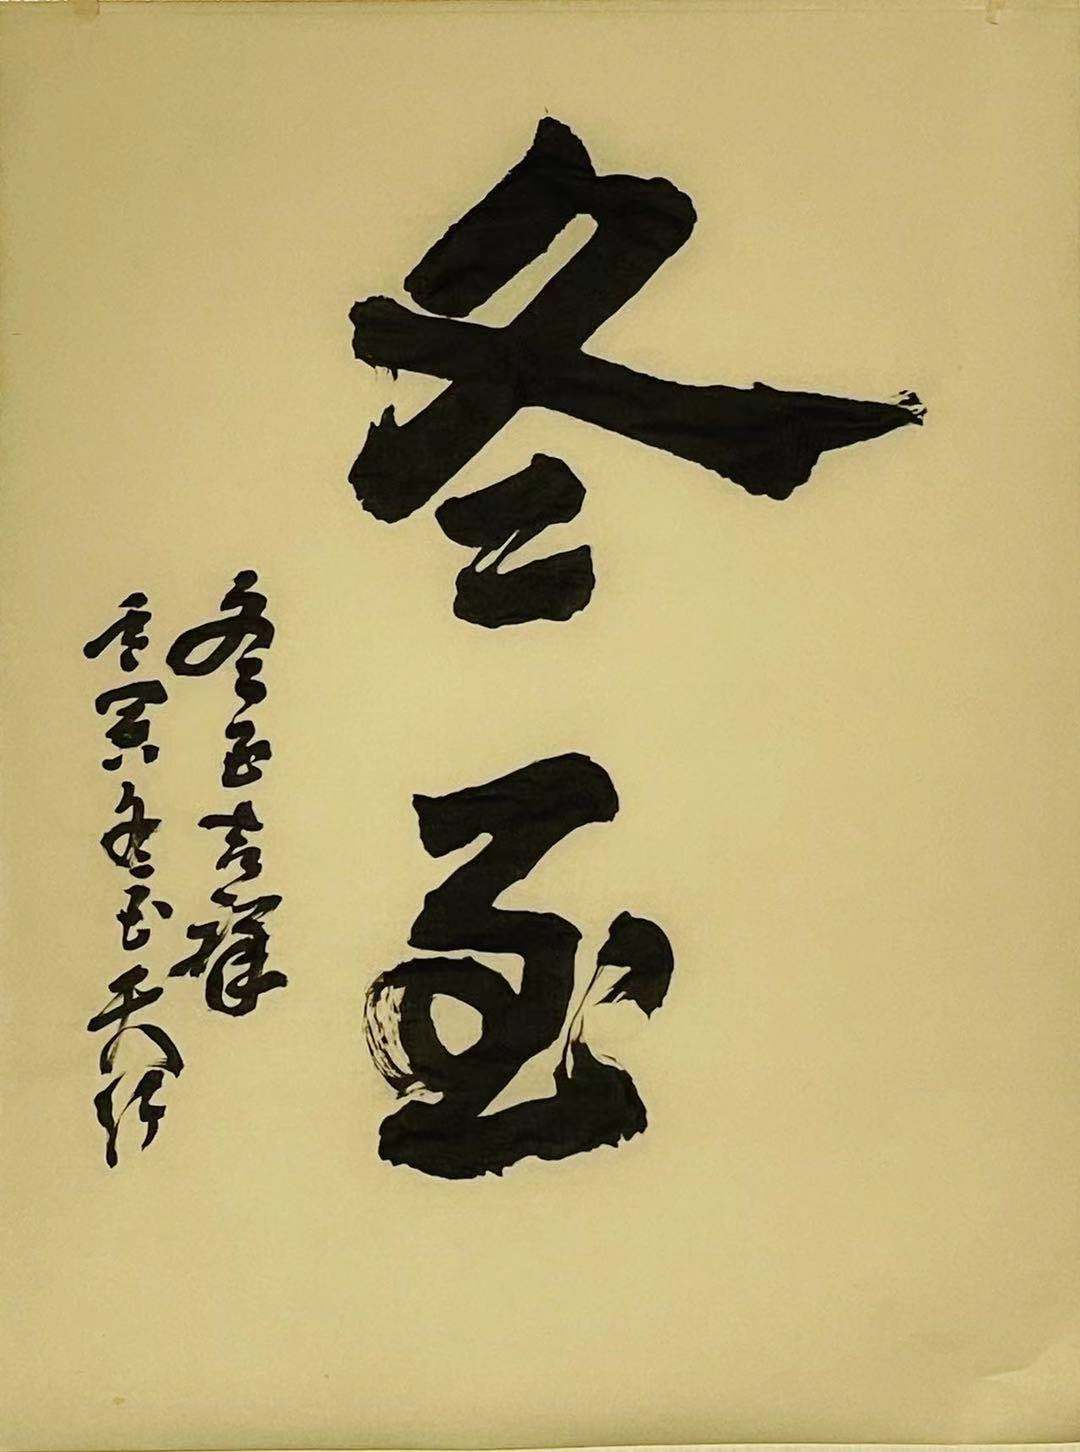 冬至
冬至吉祥
壬寅冬至天行